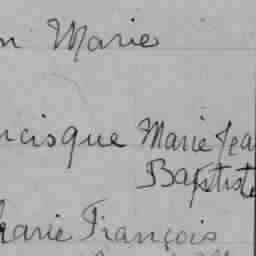 n Marie
ncisque Marie Jea
Baptiste
harie François